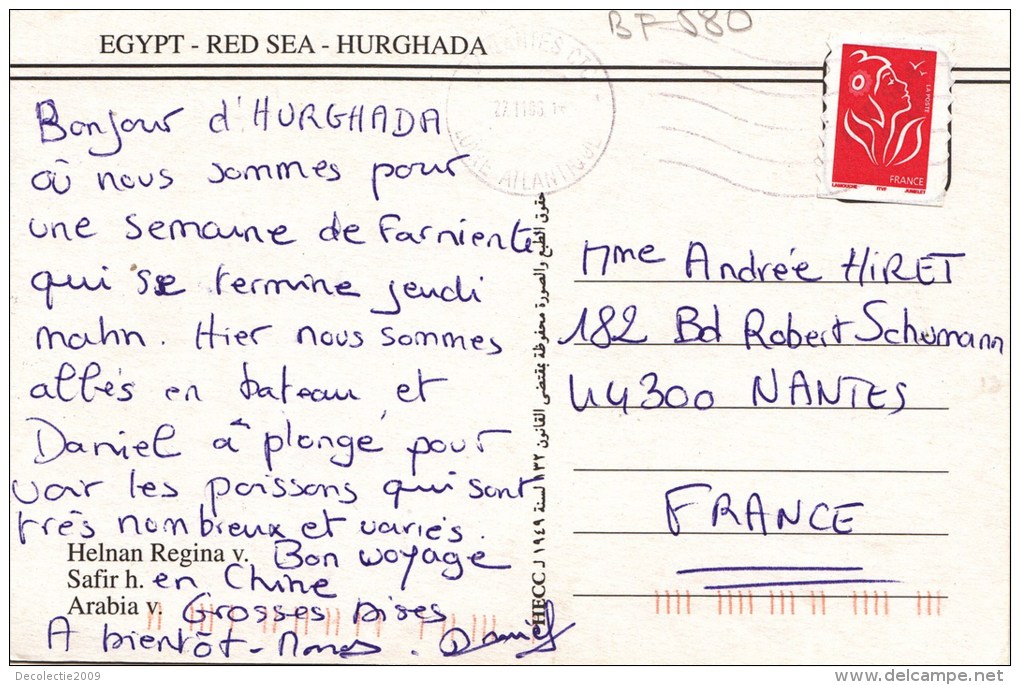 BF-580
EGYPT - RED SEA - HURGHADA
NANTES CTC
27.11
LOIRE ATLANTIQUE
LA POSTE
FRANCE
LAMOUCHE ITVF JUMELET
Bonjour d'HURGHADA
où nous sommes pour
une semaine de Farniente
qui se termine jeudi
matin. Hier nous sommes
allés en bateau et
Daniel à plongé pour
voir les poissons qui sont
très nombreux et variés.
Bon voyage
en Chine
Grosses bises
A bientôt -
Daniel
Helnan Regina v.
Safir h.
Arabia v.
حقوق الطبع والصورة محفوظة بمقتضى القانون ١٣٢ لسنة ١٩٤٩ HECC
Mme Andrée HIRET
182 Bd Robert Schumann
44300 NANTES
FRANCE
Decolectie2009
delcampe.net